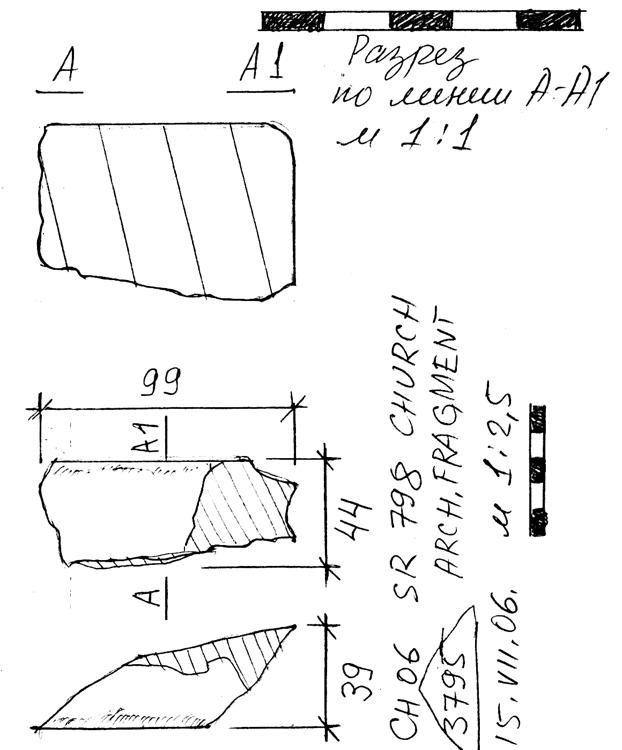 A A1
Разрез
по линии А-А1
м 1:1
99
A1
44
A
39
CH 06 SR 798 CHURCH
ARCH. FRAGMENT
3795
15.VII.06. м 1:2,5